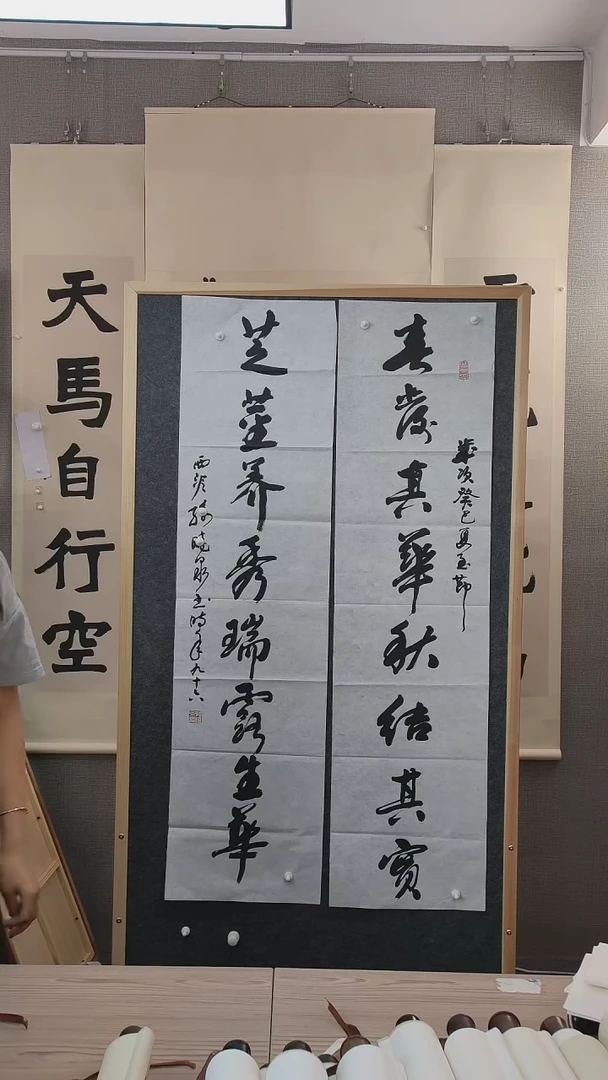 春發其華秋結其實
歲次癸巳夏至節
芝莖養秀瑞露生華
西泠孫曉泉書時年九十六
天馬自行空